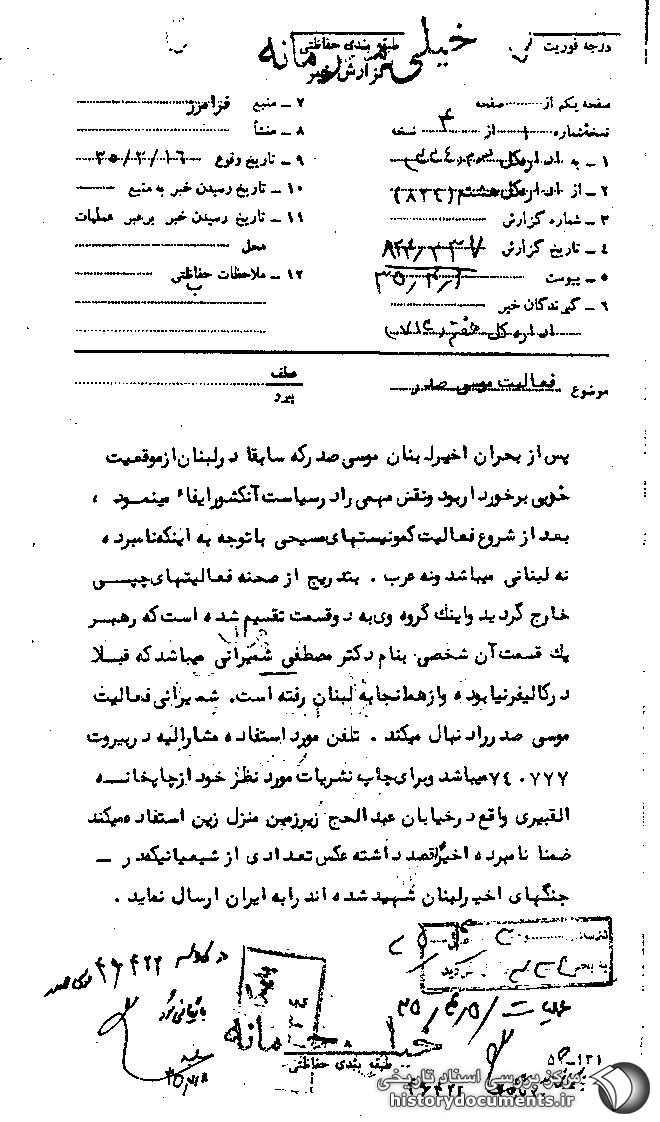 درجه فوریت
طبقه بندی حفاظتی
خیلی محرمانه
گزارش خبر
صفحه یکم از صفحه
نسخه شماره ۱ از ۴ نسخه
۱ ـ به اداره کل
۲ ـ از اداره کل هشتم (۸۳۴)
۳ ـ شماره گزارش
۴ ـ تاریخ گزارش
۵ ـ پیوست
۶ ـ گیرندگان خبر
اداره کل هفتم
۷ ـ منبع فرامرز
۸ ـ منشأ
۹ ـ تاریخ وقوع ۳۵/۳/۱۶
۱۰ ـ تاریخ رسیدن خبر به منبع
۱۱ ـ تاریخ رسیدن خبر برهبر عملیات
محل
۱۲ ـ ملاحظات حفاظتی
موضوع فعالیت موسی صدر
عطف
پیرو
پس از بحران اخیر لبنان موسی صدر که سابقا در لبنان از موقعیت
خوبی برخوردار بود و نقش مهمی را در سیاست آنکشور ایفاء مینمود ،
بعد از شروع فعالیت کمونیستهای مسیحی با توجه به اینکه نامبرده
نه لبنانی میباشد و نه عرب . بتدریج از صحنه فعالیتهای چپی
خارج گردید و اینك گروه وی به دو قسمت تقسیم شده است که رهبر
یك قسمت آن شخصی بنام دکتر مصطفی شمیرانی میباشد که قبلا
در کالیفرنیا بوده و از همانجا به لبنان رفته است. شمیرانی فعالیت
موسی صدر را دنبال میکند . تلفن مورد استفاده مشارالیه در بیروت
۷۴۰۷۷۷ میباشد و برای چاپ نشریات مورد نظر خود از چاپخانه
القبیری واقع در خیابان عبدالحج زیرزمین منزل زین استفاده میکند
ضمنا نامبرده اخیرا قصد داشته عکس تعدادی از شیعیانیکه در ـ
جنگهای اخیر لبنان شهید شده اند را به ایران ارسال نماید .
در کلاسه ۴۶۴۲۲
بایگانی گردد
۳۵/۴/۵
خیلی محرمانه
طبقه بندی حفاظتی
۵۲ـ۱۳۱
۴۶۴۲۲
مرکز بررسی اسناد تاریخی
historydocuments.ir